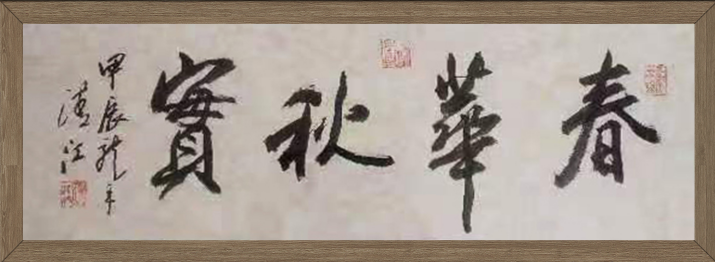 春華秋實
甲辰龍年
漢江